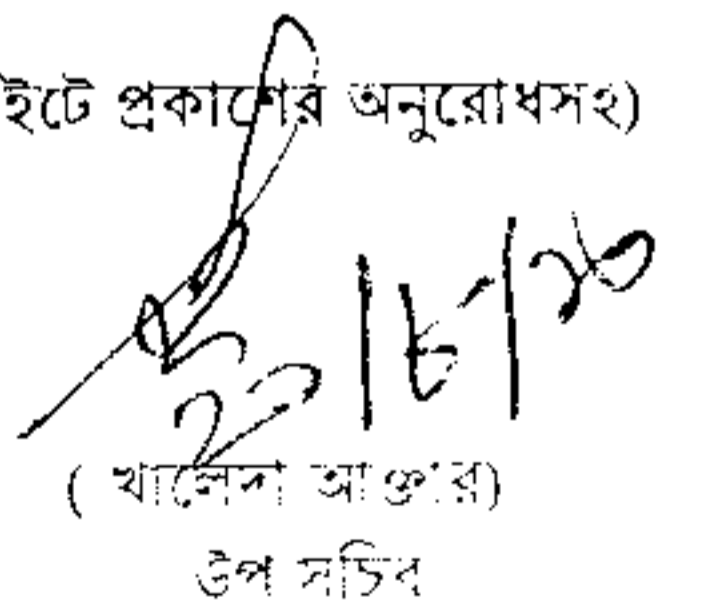 ইটে প্রকাশের অনুরোধসহ)
(খালেদা আক্তার)
উপ সচিব